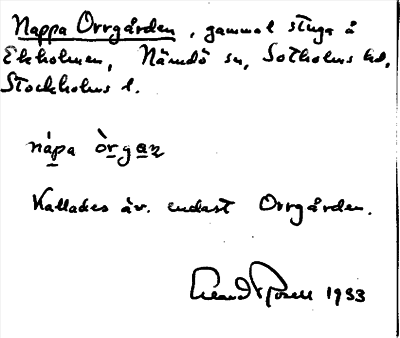 Nappa Orrgården, gammal stuga å
Ekholmen, Nämdö sn, Sotholms hd,
Stockholms l.
nápa òrgaɳ
Kallades äv. endast Orrgården.
Rosell 1933